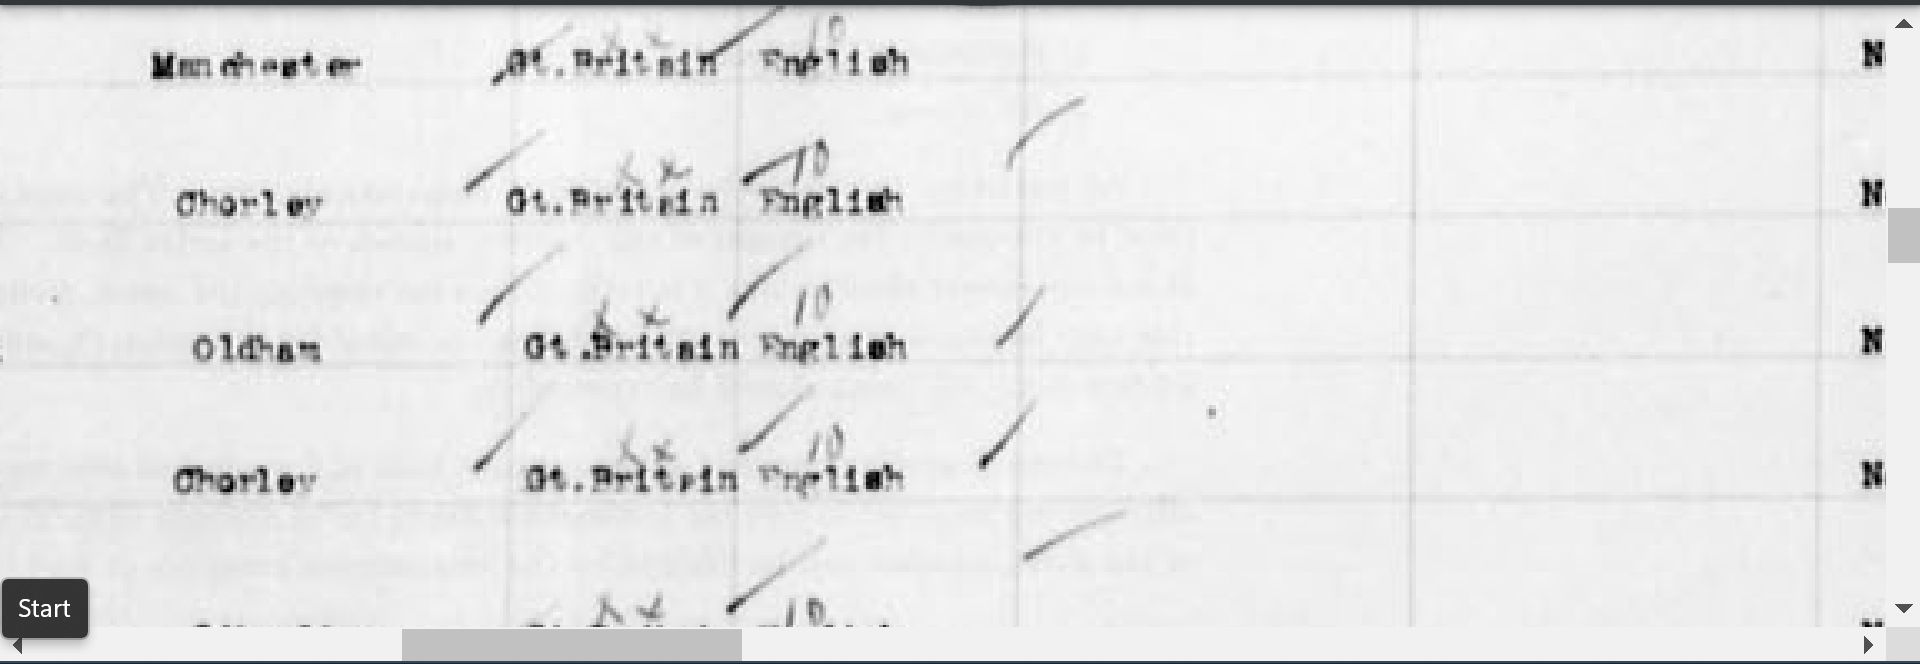 Manchester Gt.Britain x x English 10 N
Chorley Gt.Britain x x English 10 N
Oldham Gt.Britain x x English 10 N
Chorley Gt.Britain x x English 10 N
x x 10
Start